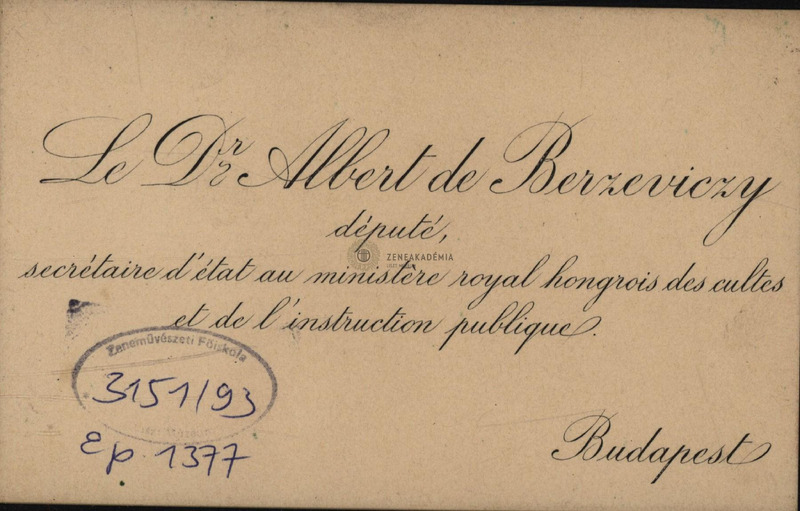 Le Dr Albert de Berzeviczy
député,
ZENEAKADÉMIA
secrétaire d'état au ministère royal hongrois des cultes
et de l'instruction publique.
Zeneművészeti Főiskola
3151/93
Ep. 1377
Budapest